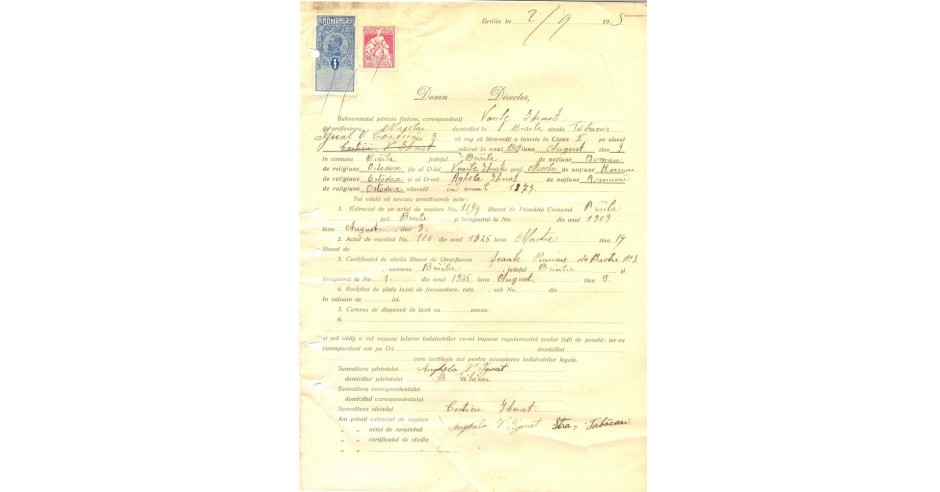 ROMANIA
1
Brăila în 2/9 1925
Domn Director,
Subsemnatul părinte (tutore, corespondent) Vasile Ihnat
de profesiune domiciliat în Braila strada Tabacar
Ignat V Costică No. 9 vă rog să binevoiți a înscrie în Clasa I pe elevul
Costică V Ihnat născut în anul 1909 luna August ziua 9
în comuna Brăila județul Brăila de națiune Roman
de religiune Ortodox fiu al D-lui Vasile Ihnat prof. de națiune Roman
de religiune Ortodox și al D-nei Aghela Ihnat de națiune Romană
de religiune Ortodox născută în anul 1874.
Tot odată vă anexez următoarele acte:
1. Extractul de pe actul de naștere No. 1194 liberat de Primăria Comunei Brăila
jud. Braila și înregistrat la No. din anul 1909
luna August ziua 9.
2. Actul de vaccină No. 116 din anul 1925 luna Martie ziua 14
liberat de
3. Certificatul de studiu liberat de Direcțiunea școale Primare de Băeți No 2
, comuna Brăila , județul Brăila și
înregistrat la No 1 din anul 1925 luna August ziua 9.
4. Recipisa de plata taxei de frecventare, rata sub No. din
în valoare de lei.
5. Cererea de dispensă de taxă cu anexe.
6.
și mă oblig a mă supune tuturor îndatoririlor ce-mi impune regulamentul școlar față de școală; iar ca
corespondent am pe D-l domiciliat
care iscălește aci pentru acceptarea îndatoririlor legale.
Semnătura părintelui Anghela V Ignat
domiciliul părintelui Tăbăcar
Semnătura corespondentului
domiciliul corespondentului
Semnătura elevului Costică Ihnat.
Am primit extractul de naștere Anghela V Ignat Stra= Tabăcari
„ „ actul de revaccină
„ „ certificatul de studiu